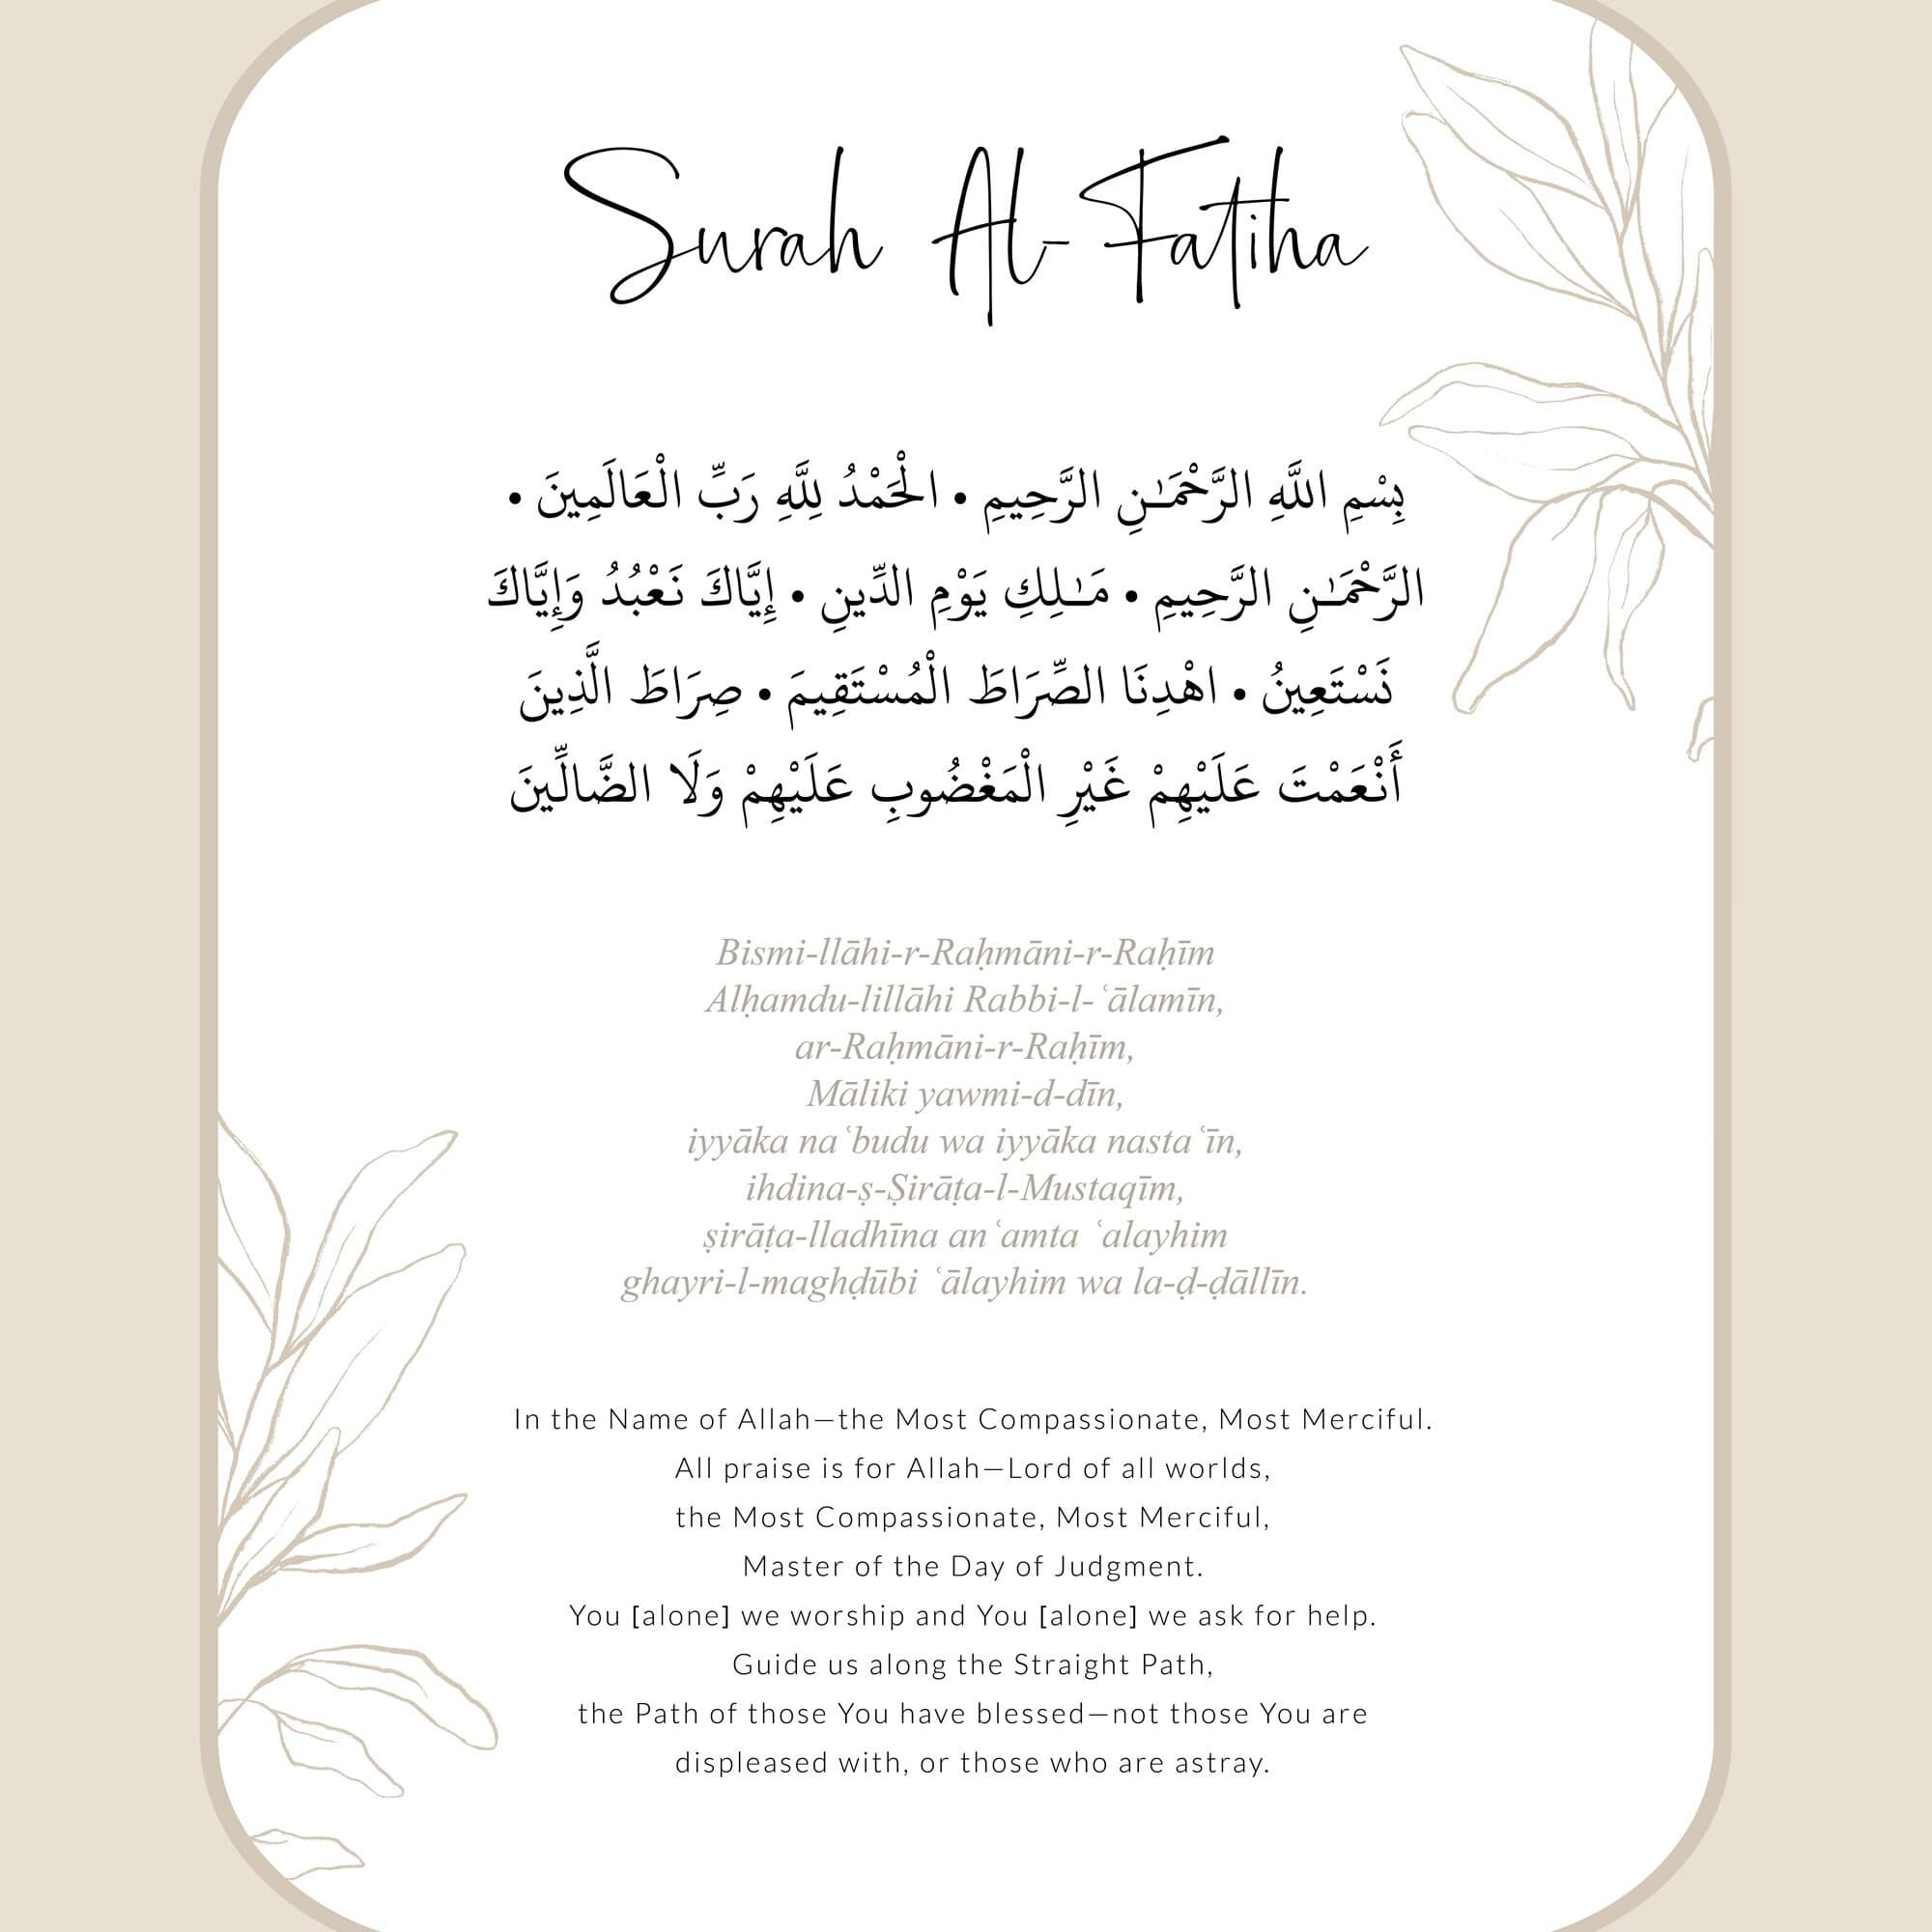 Surah Al-Fatiha
بِسْمِ اللَّهِ الرَّحْمَـٰنِ الرَّحِيمِ • الْحَمْدُ لِلَّهِ رَبِّ الْعَالَمِينَ •
الرَّحْمَـٰنِ الرَّحِيمِ • مَـٰلِكِ يَوْمِ الدِّينِ • إِيَّاكَ نَعْبُدُ وَإِيَّاكَ
نَسْتَعِينُ • اهْدِنَا الصِّرَاطَ الْمُسْتَقِيمَ • صِرَاطَ الَّذِينَ
أَنْعَمْتَ عَلَيْهِمْ غَيْرِ الْمَغْضُوبِ عَلَيْهِمْ وَلَا الضَّالِّينَ
Bismi-llāhi-r-Raḥmāni-r-Raḥīm
Alḥamdu-lillāhi Rabbi-l-ʿālamīn,
ar-Raḥmāni-r-Raḥīm,
Māliki yawmi-d-dīn,
iyyāka naʿbudu wa iyyāka nastaʿīn,
ihdina-ṣ-Ṣirāṭa-l-Mustaqīm,
ṣirāṭa-lladhīna anʿamta ʿalayhim
ghayri-l-maghḍūbi ʿālayhim wa la-ḍ-ḍāllīn.
In the Name of Allah—the Most Compassionate, Most Merciful.
All praise is for Allah—Lord of all worlds,
the Most Compassionate, Most Merciful,
Master of the Day of Judgment.
You [alone] we worship and You [alone] we ask for help.
Guide us along the Straight Path,
the Path of those You have blessed—not those You are
displeased with, or those who are astray.